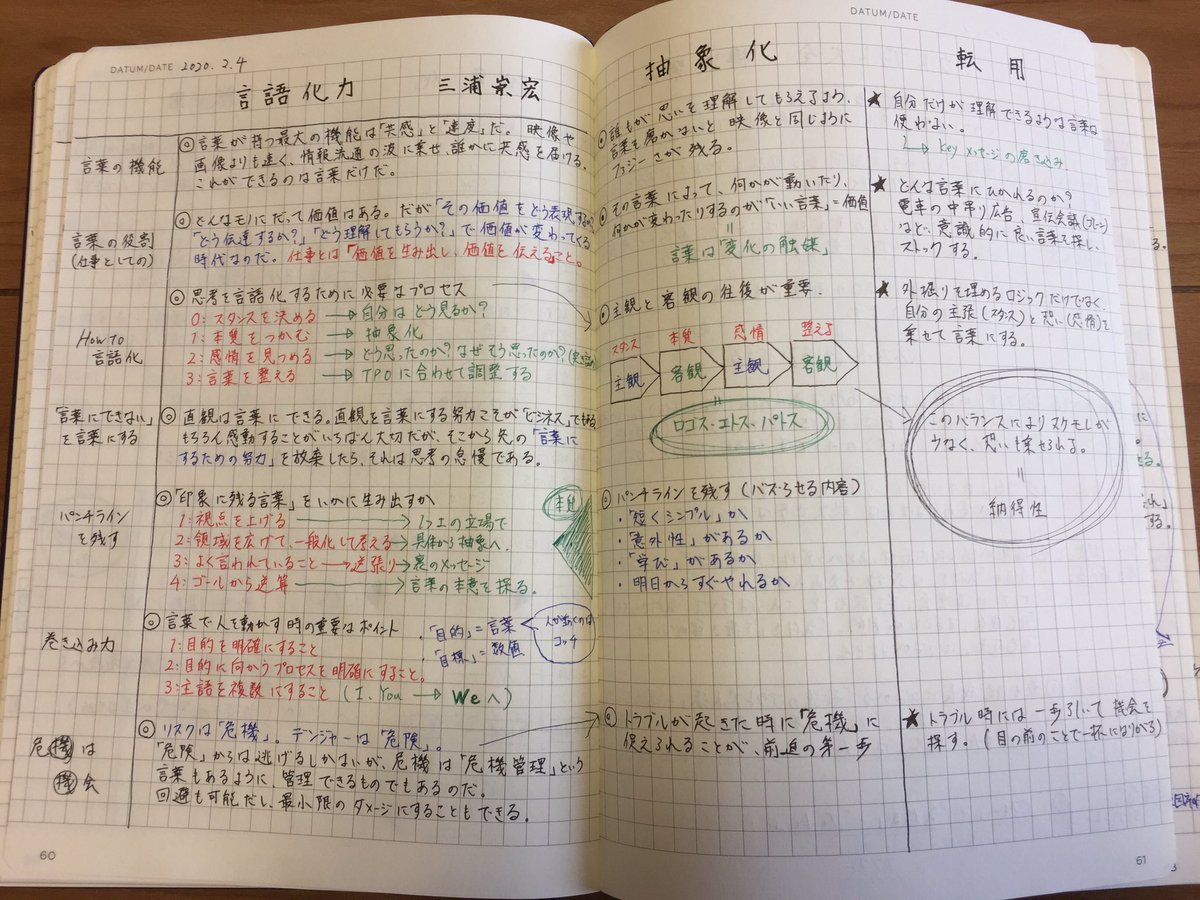 DATUM/DATE 2020.2.4
言語化力 三浦崇宏
言葉の機能
◎言葉が持つ最大の機能は「共感」と「速度」だ。映像や
画像よりも速く、情報流通の波に乗せ、誰かに共感を届ける。
これができるのは言葉だけだ。
言葉の役割
(仕事としての)
◎どんなモノにだって価値はある。だが「その価値をどう表現するか?」
「どう伝達するか?」「どう理解してもらうか?」で価値が変わってくる
時代なのだ。仕事とは「価値を生み出し、価値を伝える」こと。
How to
言語化
◎思考を言語化するために必要なプロセス
0:スタンスを決める→自分はどう見るか?
1:本質をつかむ→抽象化
2:感情を見つめる→どう思ったのか?なぜそう思ったのか?
3:言葉を整える→TPOに合わせて調整する
「言葉にできない」
を言葉にする
◎直観は言葉にできる。直観を言葉にする努力こそが「ビジネス」でもある
もちろん感動することがいちばん大切だが、そこから先の「言葉に
するための努力」を放棄したら、それは思考の怠慢である。
パンチライン
を残す
◎「印象に残る言葉」をいかに生み出すか
1:視点を上げる→1つ上の立場で
2:領域を広げて、一般化して考える→具体から抽象へ
3:よく言われていること→逆張り→裏のメッセージ
4:ゴールから逆算→言葉の本意を探る。
本質
巻き込み力
◎言葉で人を動かす時の重要はポイント
1:目的を明確にすること
2:目的に向かうプロセスを明確にすること。
3:主語を複数にすること(I、You→Weへ)
・「目的」=言葉
・「目標」=数値
人が動くのは
コッチ
危機は
機会
◎リスクは「危機」。デンジャーは「危険」。
「危険」からは逃げるしかないが、危機は「危機管理」という
言葉もあるように、管理できるものでもあるのだ。
回避も可能だし、最小限のダメージにすることもできる。
60
DATUM/DATE
抽象化
転用
◎誰もが思いを理解してもらえるよう、
言葉を磨かないと映像と同じように
ファジーさが残る。
◎その言葉によって、何かが動いたり、
何かが変わったりするのが「いい言葉」=価値
=
言葉は「変化の触媒」
◎主観と客観の往復が重要.
スタンス 本質 感情 整える
主観 客観 主観 客観
=
ロゴス・エトス・パトス
◎パンチラインを残す(バズらせる内容)
・「短くシンプル」か
・「意外性」があるか
・「学び」があるか
・明日からすぐやれるか
◎トラブルが起きた時に「危機」に
捉えられることが、前進の第一歩
★自分だけが理解できるような言葉は
使わない。
→Keyメッセージの磨き込み
★どんな言葉にひかれるのか?
電車の中吊り広告、宣伝会議(ブレーン)
など、意識的に良い言葉を探し、
ストックする。
★外堀りを埋めるロジックだけでなく
自分の主張(スタンス)と想い(感情)を
乗せて言葉にする。
このバランスによりヌケモレが
うなく、想いも乗せられる。
=
納得性
★トラブル時には一歩引いて機会を
探す。(目の前のことで一杯になりがち)
61